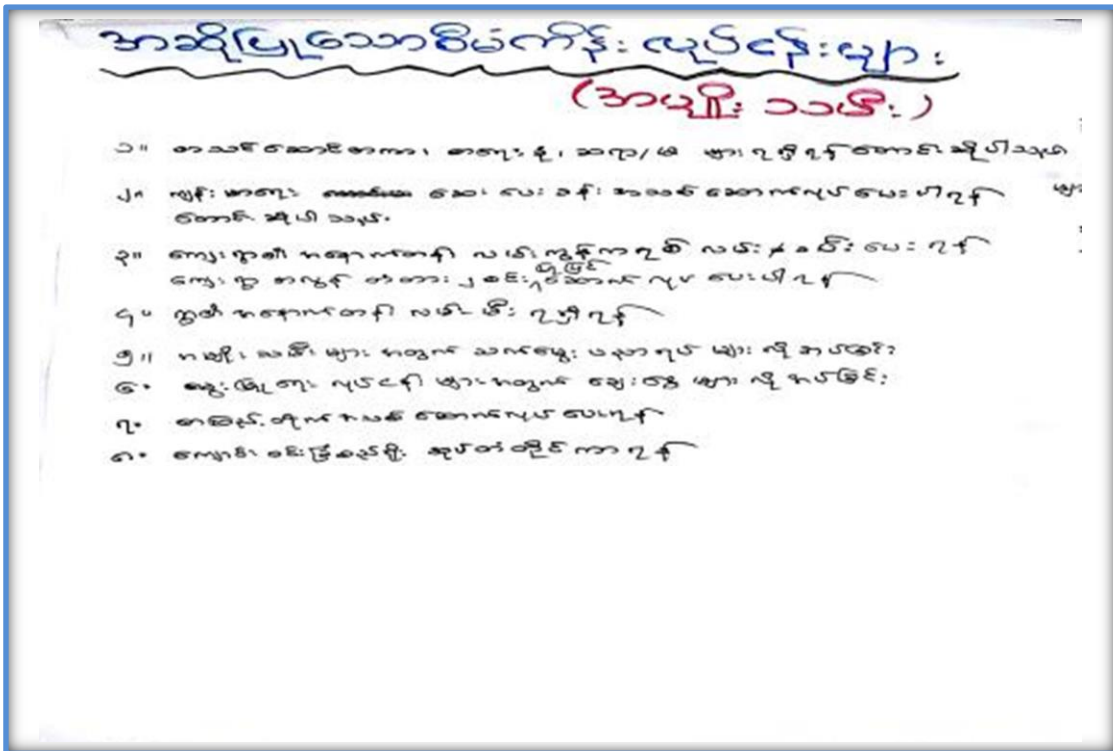 အဆိုပြုသောစီမံကိန်း လုပ်ငန်းများ
(အမျိုး သမီး)
၁။ စာသင်ဆောင် စာကား၊ စာရေး ခုံ၊ ဆရာ/မ များ ရရှိရန် တောင်းဆိုပါသည်
၂။ ကျန်းမာရေး ဆေး ပေး ခန်း အသစ် ဆောက်လုပ် ပေးပါရန်
တောင်း ဆိုပါ သည်.
၃။ ကျေးရွာ၏ အနောက်ဘက်ရှိ လမ်း ကွန်ကရစ် လမ်း ခင်း ပေး ရန်
ကျေးရွာ တံတား ၂ စင်း ပြုပြင် ဆောက် လုပ် ပေးပါရန်
၄။ ရွာ၏ အနောက်ဘက်ရှိ လမ်း မီး ရရှိရန်
၅။ အမျိုး သမီး များ အတွက် သက်မွေး ပညာရပ် များ လို အပ်ခြင်း
၆။ မွေး မြူ ရေး လုပ်ငန်း များ အတွက် ချေး ငွေ များ လို အပ်ခြင်း
၇။ စာကြည့်တိုက် အသစ် ဆောက်လုပ် ပေးရန်
၈။ ကျောင်း ဝင်း ခြံစည်ရိုး အုတ်တံတိုင်း ကာ ရန်